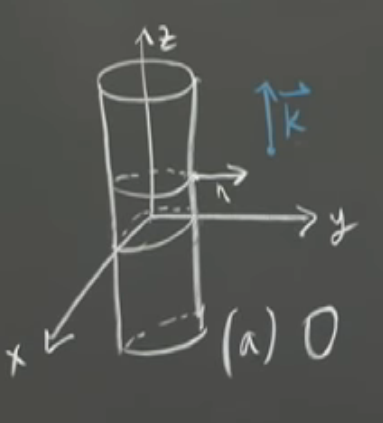 z
k
n
y
x
(a) 0